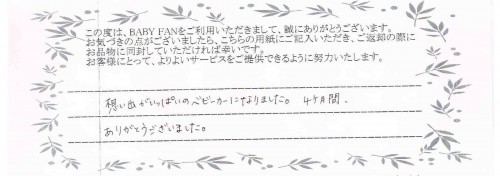 この度は、BABY FANをご利用いただきまして、誠にありがとうございます。
お気づきの点がございましたら、こちらの用紙にご記入いただき、ご返却の際に
お品物に同封していただければ幸いです。
お客様にとって、よりよいサービスをご提供できるように努力いたします。
想い出がいっぱいのベビーカーになりました。4ヶ月間、
ありがとうございました。